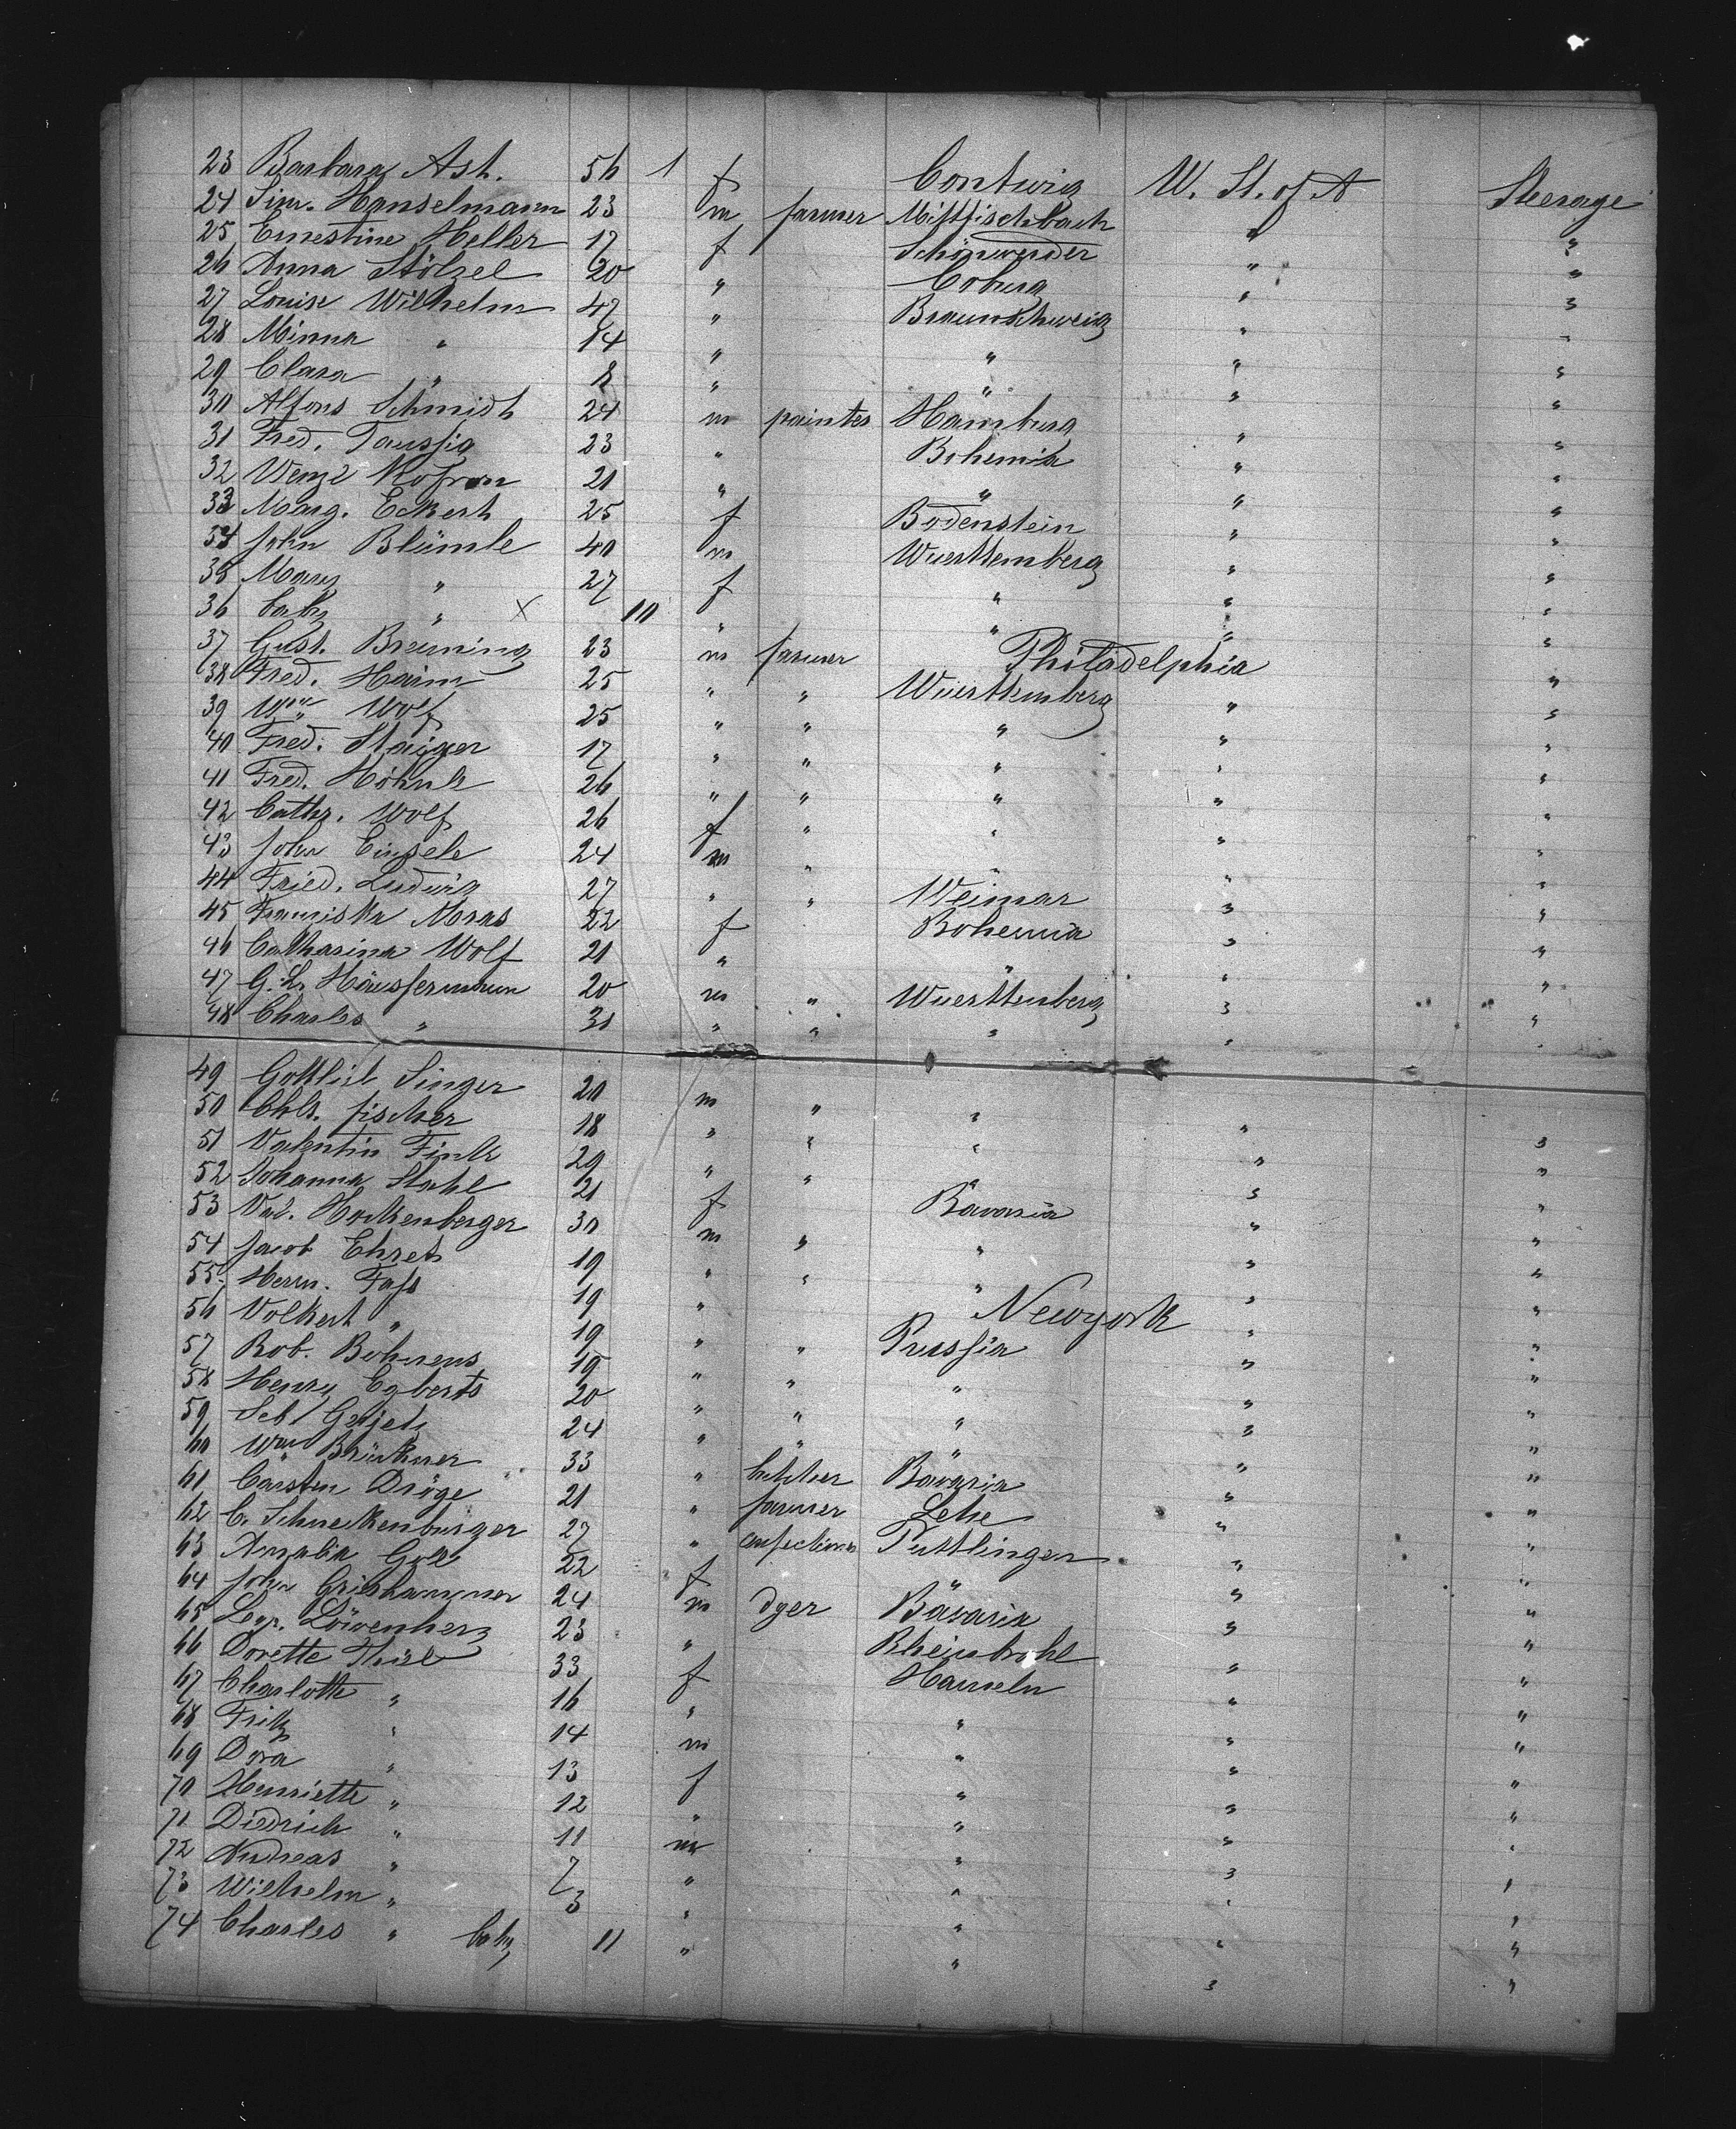 23 Barbara Ast. 56 1 f Contwig U. St. of A Steerage
24 Sim. Hanselmann 23 m farmer Mittfischbach " "
25 Ernestine Heller 17 f " "
26 Anna Stölzel 20 " Coburg " "
27 Louise Wilhelm 47 " Braunschweig " "
28 Minna " 14 " " " "
29 Clara " 8 " " " "
30 Alfons Schmidt 24 m painter Hamburg " "
31 Fred. Taussig 23 " Bohemia " "
32 Wenzl 21 " " " "
33 Marg. Eckert 25 f Bodenstein " "
34 John Blümle 40 m Wuerttemberg " "
35 Mary " 27 f " " "
36 baby " X 10 " " " "
37 Gust. Breuning 23 m farmer Philadelphia "
38 Fred. Haim 25 " " Wuerttemberg " "
39 Wm Wolf 25 " " " " "
40 Fred. Staiger 17 " " " " "
41 Fred. Höhnle 26 " " " " "
42 Cathr. Wolf 26 f " " " "
43 John Einsele 24 m " " " "
44 Fried. Ludwig 27 " " Weimar " "
45 Franziska Moras 22 f Bohemia " "
46 Catharina Wolf 21 " " " "
47 G. L. Häusermann 20 m " Wuerttemberg " "
48 Charles " 31 " " " " "
49 Gottlieb Singer 20 m " " " "
50 Chr. fischer 18 " " " " "
51 Valentin Fink 29 " " " " "
52 Johanna Stahl 21 f Bavaria " "
53 Val. Hockenberger 30 m " " " "
54 Jacob Ehret 19 " " " " "
55 Herm. Fass 19 " Newyork "
56 Volkert " 19 " " Prussia " "
57 Rob. Bohnens 19 " " " " "
58 Henry Egberts 20 " " " " "
59 Seb. 24 " " " " "
60 Wm Brückner 33 " butcher Bavaria " "
61 Carsten Dröge 21 " farmer Lehe " "
62 C. Schneckenburger 27 " Tuttlingen " "
63 Amalia Goll 22 f " " "
64 John Grieshammer 24 m dyer Bavaria " "
65 Leop. Löwenherz 23 " Rheinbrohl " "
66 Dorette Thiele 33 f Hameln " "
67 Charlotte " 16 " " " "
68 Fritz " 14 m " " "
69 Dora " 13 f " " "
70 Henriette " 12 " " " "
71 Diedrich " 11 m " " "
72 Andreas " 7 " " " "
73 Wilhelm " 3 " " " "
74 Charles " baby 11 " " " "